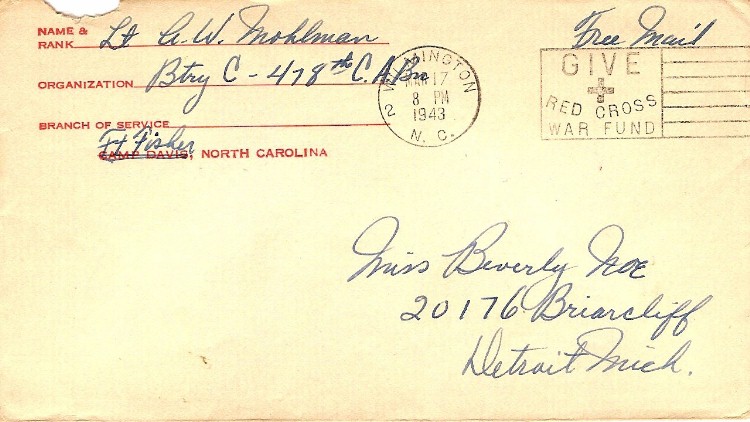 NAME &
RANK Lt A.W. Mohlman
Free Mail
ORGANIZATION Btry C - 478th C.A.Bn
BRANCH OF SERVICE
Ft Fisher
CAMP DAVIS, NORTH CAROLINA
WILMINGTON
MAR 17
8 PM
1943
N. C.
2
GIVE
RED CROSS
WAR FUND
Miss Beverly Noe
20176 Briarcliff
Detroit Mich.